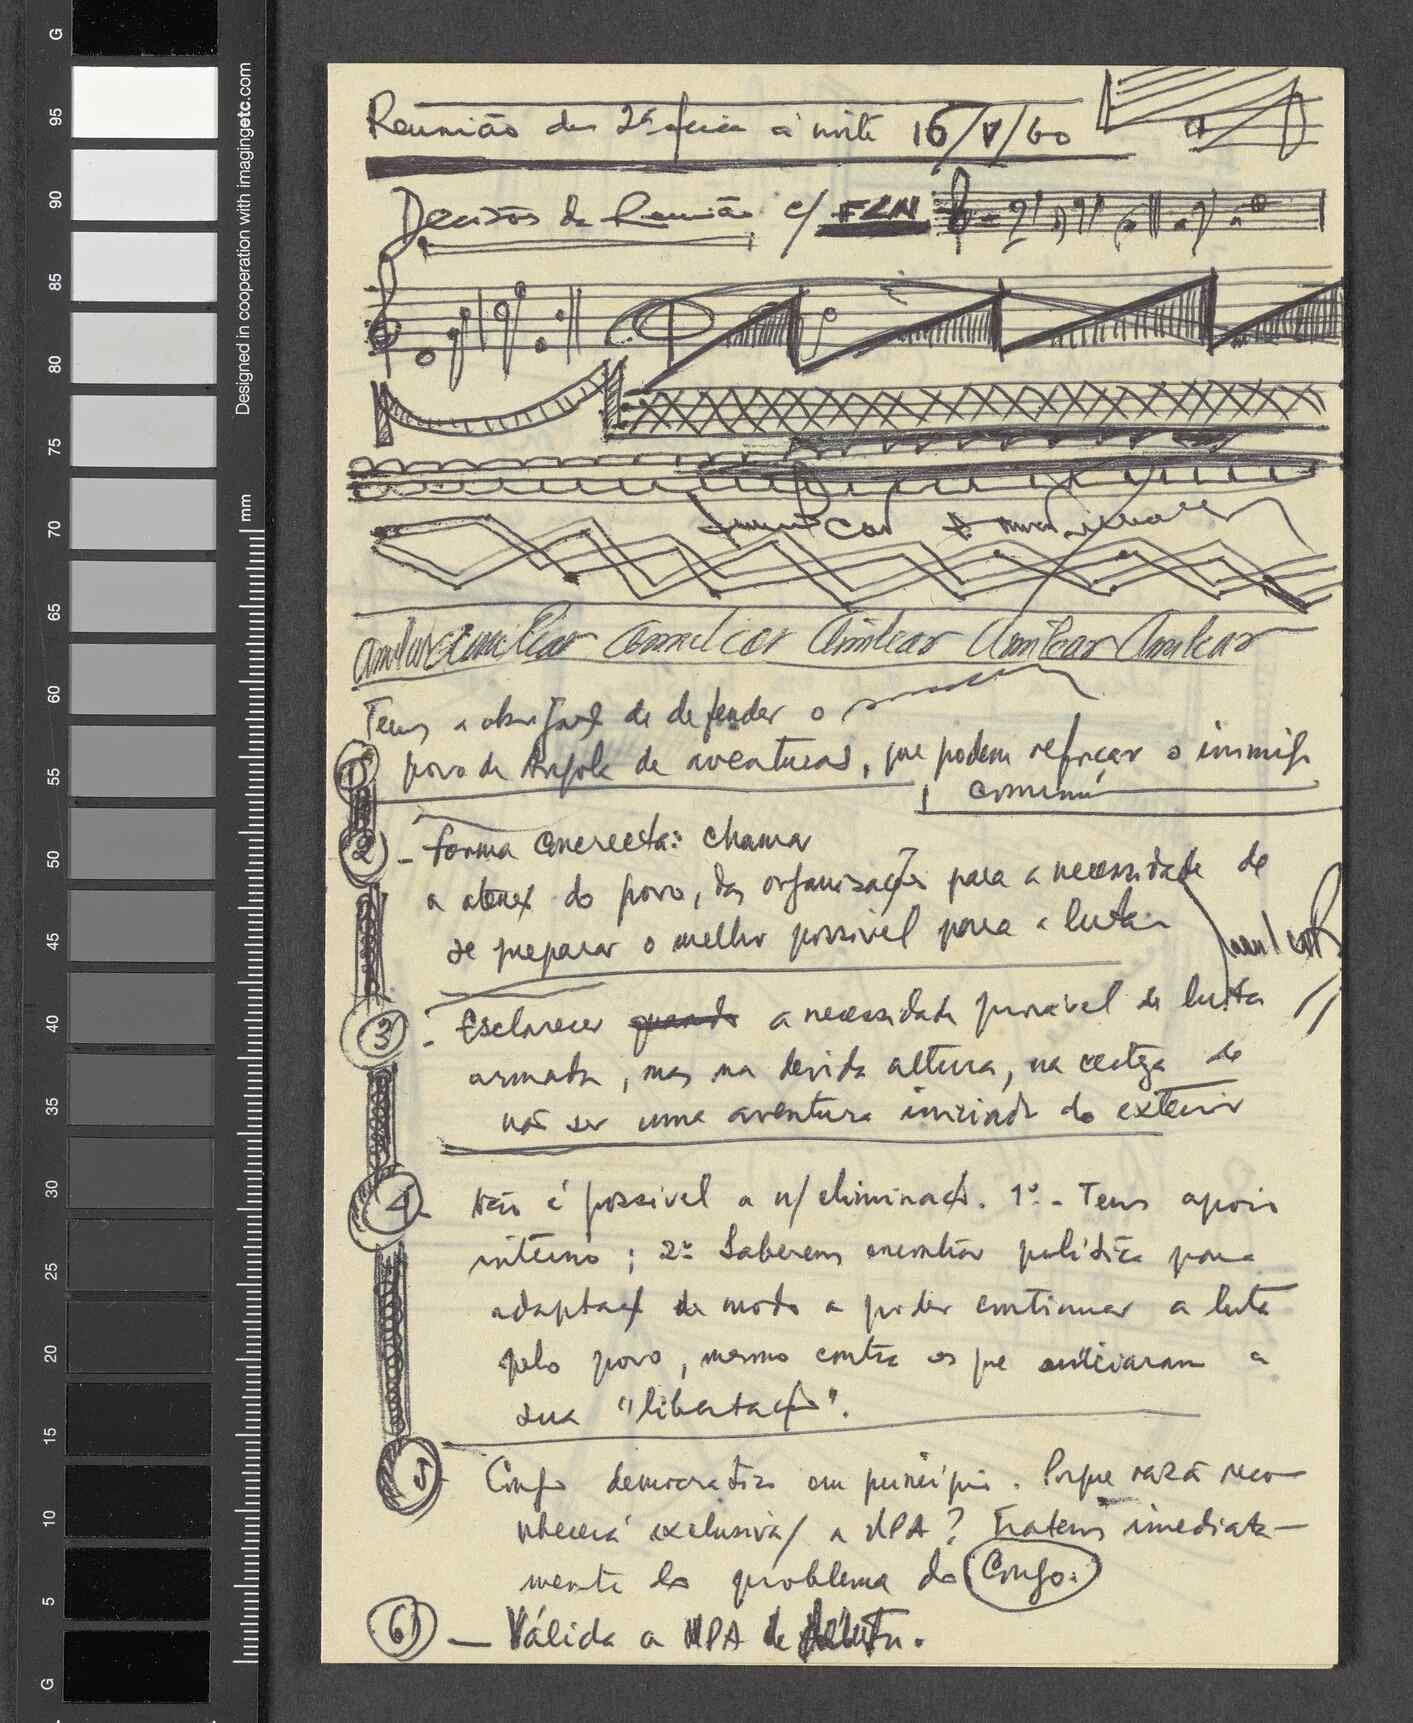 Reunião da 2ª feira à noite 16/V/60
Decisões da Reunião c/ FLN
Amilcar Amilcar Amilcar Amilcar Amilcar Amilcar
Temos a obrigaç de defender o
1) povo de Angola de aventuras, que podem reforçar o inimigo
comum
2 - Forma concreta: chamar
a atenç do povo, das organizações para a necessidade de
se preparar o melhor possível para a luta
3 - Esclarecer quando a necessidade provável de luta
armada, mas na devida altura, na certeza de
não ser uma aventura iniciada do exterior
4 - Não é possível a n/ eliminaç. 1º - Temos apoio
interno; 2º Saberemos encontrar política para
adaptaç de modo a poder continuar a luta
pelo povo, mesmo contra os que iniciaram a
sua "libertação".
5 - Congo democratico em princípio. Porque razão reco-
nhecerá exclusiva/ a UPA? Tratemos imediata-
mente do problema do Congo.
6) - Válida a UPA de
G
95
90
85
80
75
70
65
60
55
50
45
40
35
30
25
20
15
10
5
G
mm
Designed in cooperation with imagingetc.com